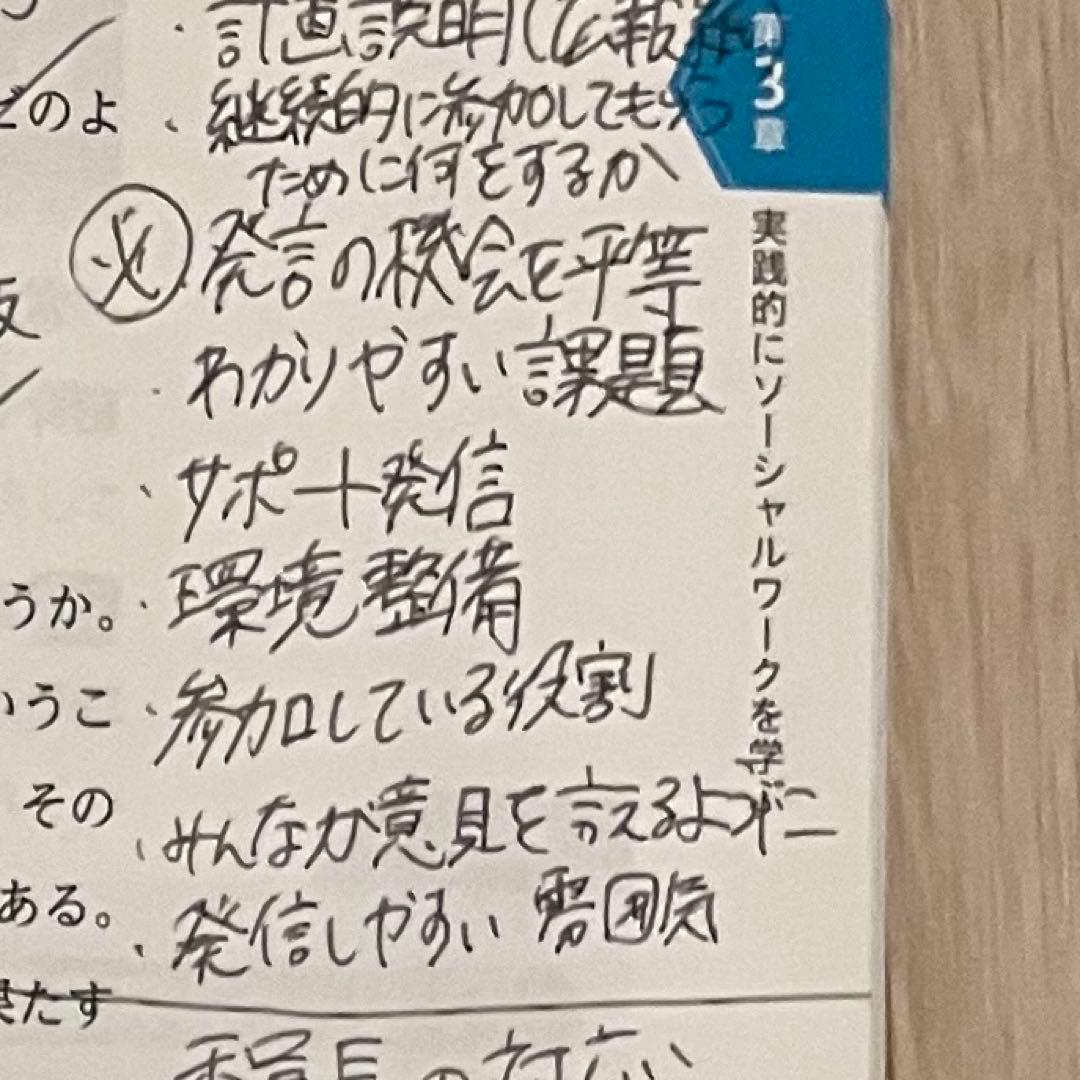 ・計画説明(広報
・継続的に参加してもらう
ために何をするか
必 発言の機会を平等
・わかりやすい課題
・サポート発信
・環境整備
・参加している役割
・みんなが意見を言えるように
・発信しやすい雰囲気
の対応
第3章
実践的にソーシャルワークを学ぶ
どのよ
うか。
いうこ
その
ある。
果たす